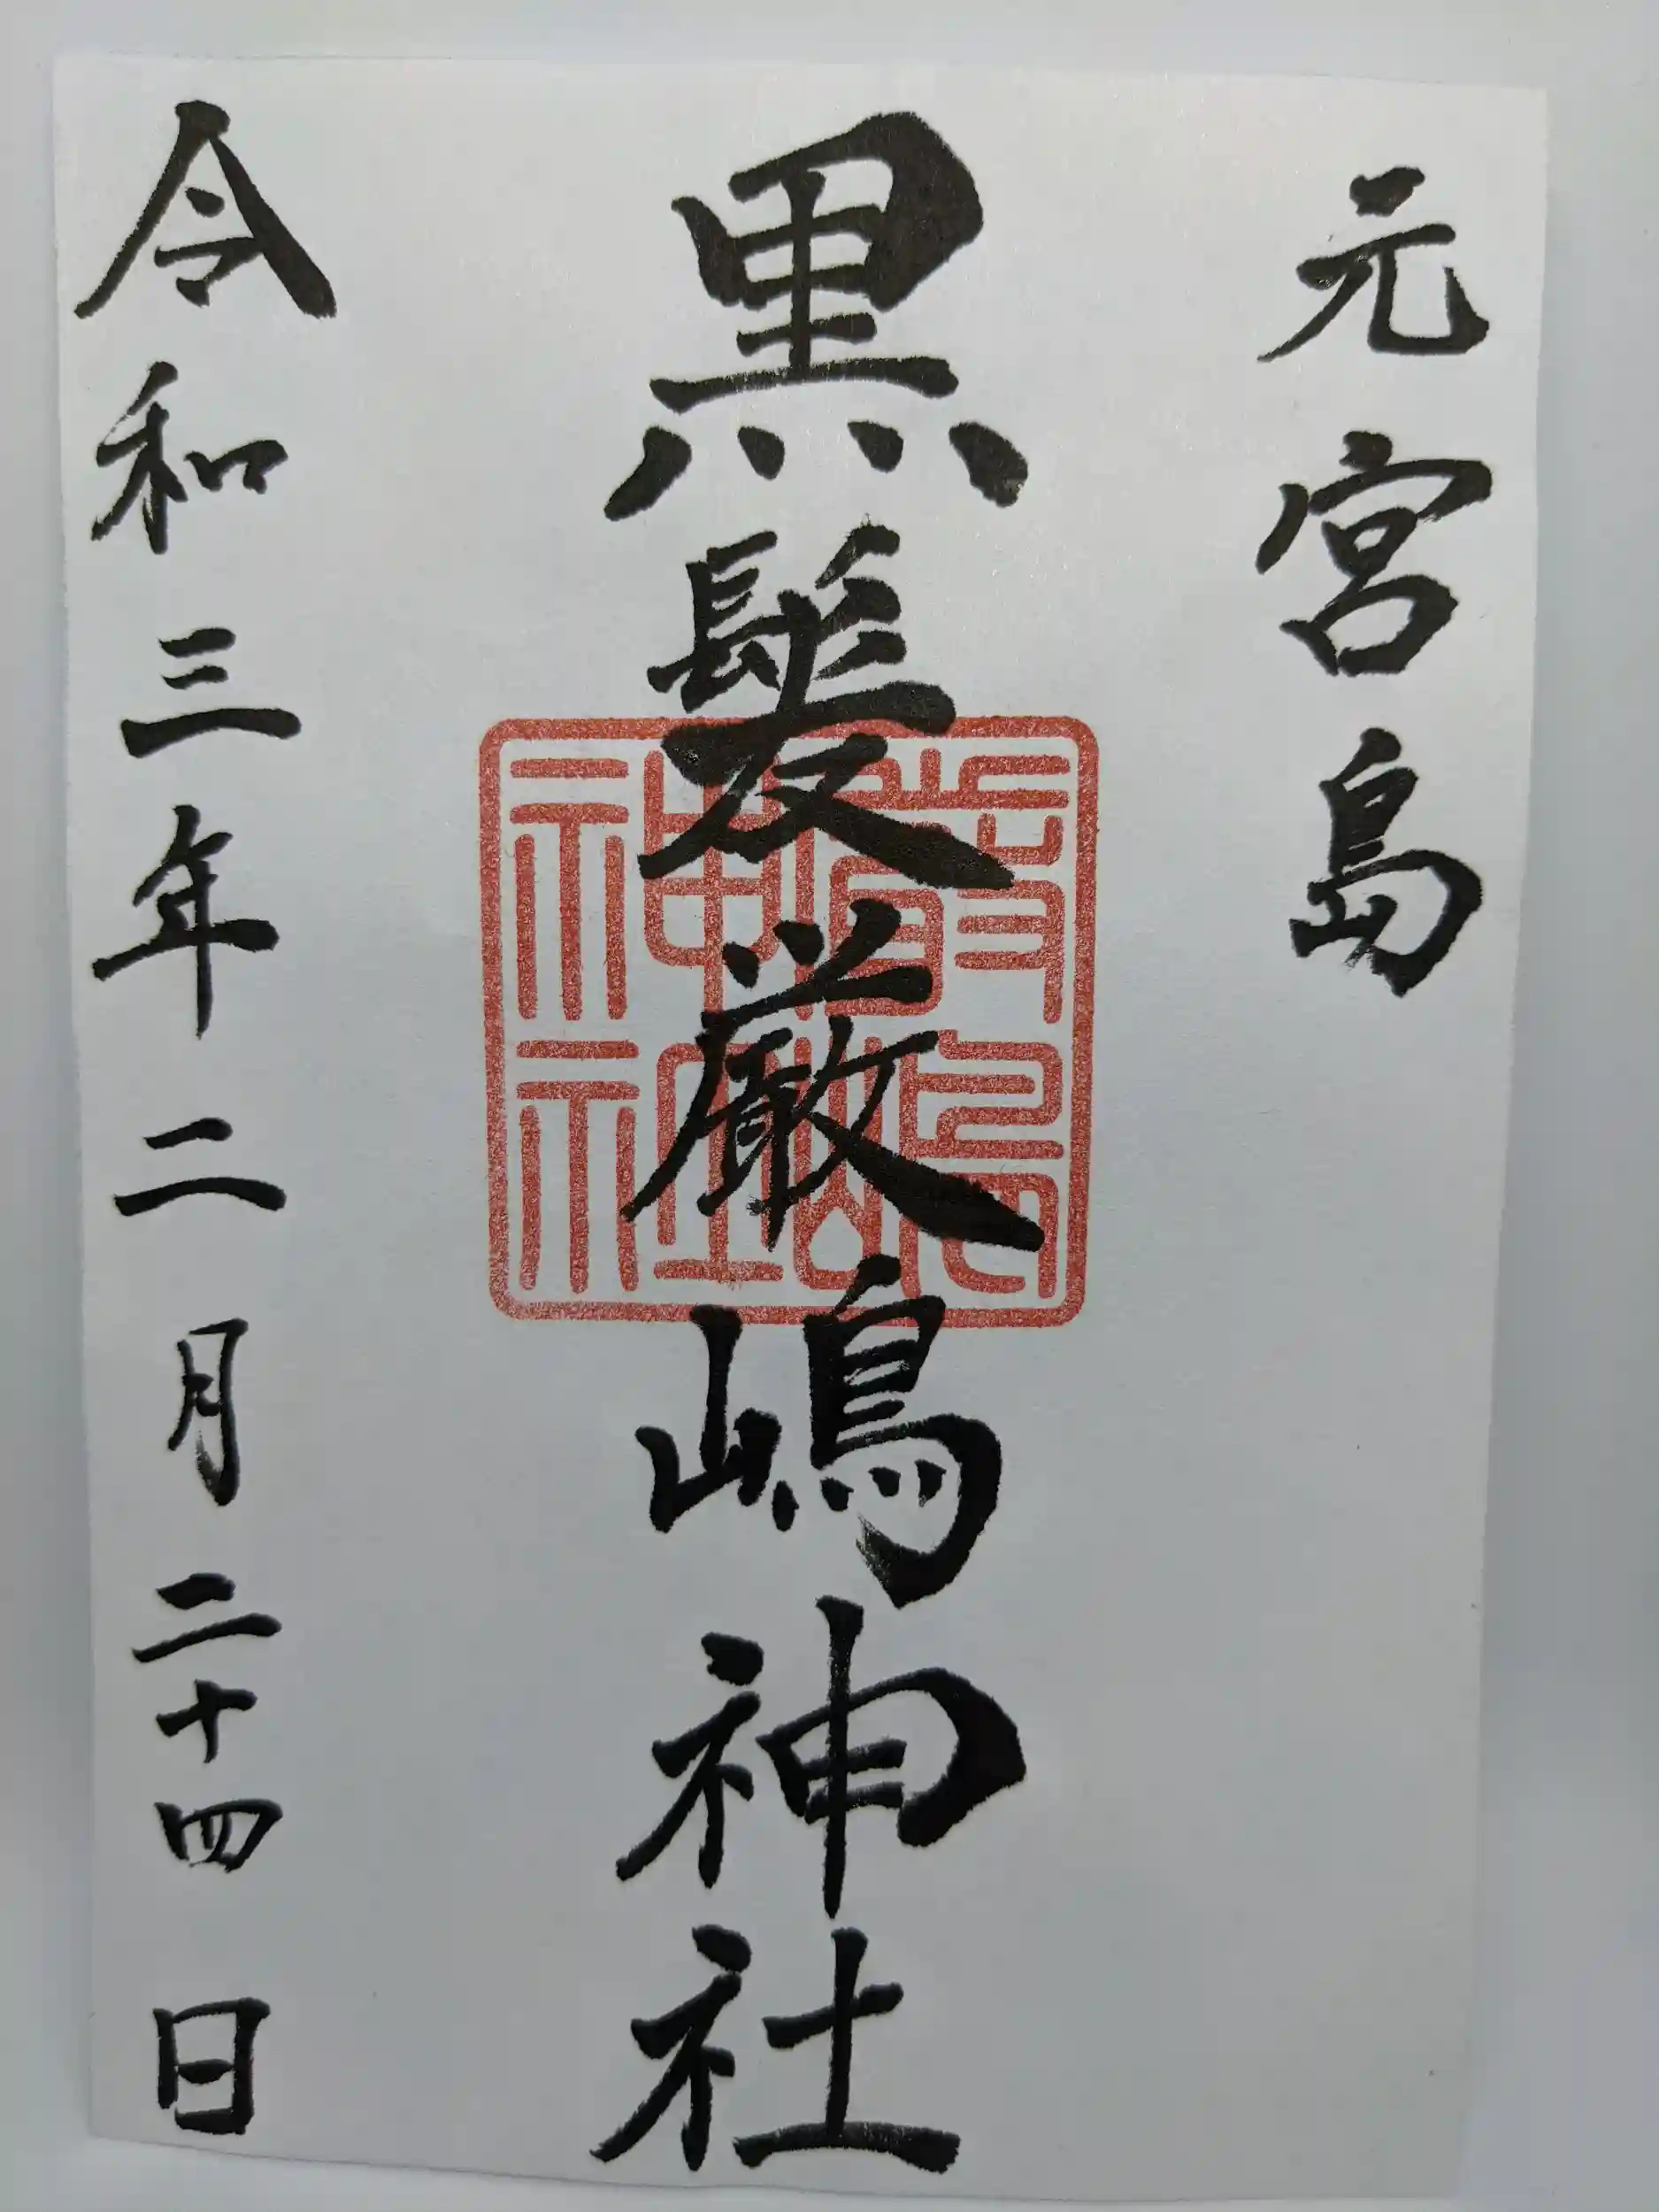 元宮島
黒髪厳嶋神社
嚴嶋神社
令和三年二月二十四日